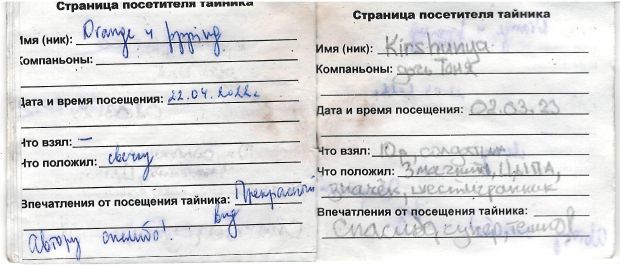 Страница посетителя тайника
Имя (ник): Orange и
Компаньоны:
Дата и время посещения: 22.04.2022г.
Что взял: —
Что положил: свечку
Впечатления от посещения тайника: Прекрасный
вид
Автору спасибо!
Страница посетителя тайника
Имя (ник): Kirshunya
Компаньоны: дочь Таня
Дата и время посещения: 02.03.23
Что взял: 10р, солдатик
Что положил: 3 магнита, ЦМПА,
значёк, шестигранник
Впечатления от посещения тайника:
Спасибо, супер,